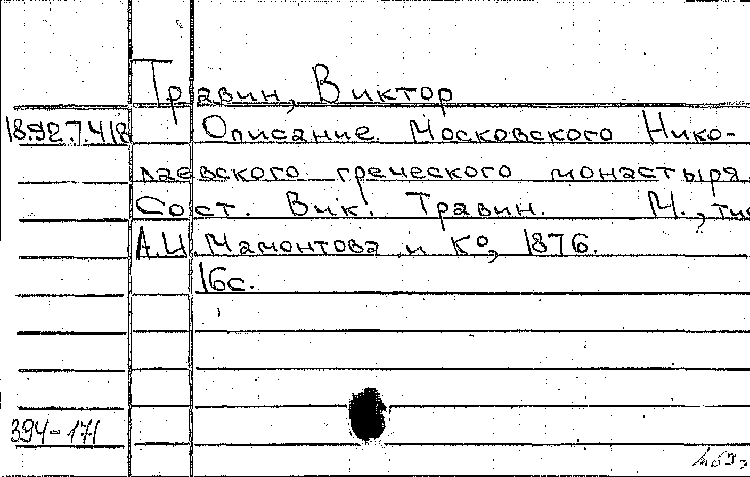 Травин, Виктор
18.927.4.18 Описание Московского Нико-
лаевского греческого монастыря.
Сост. Вик. Травин. М., тип
А.И. Мамонтова и К°, 1876.
16с.
394-171